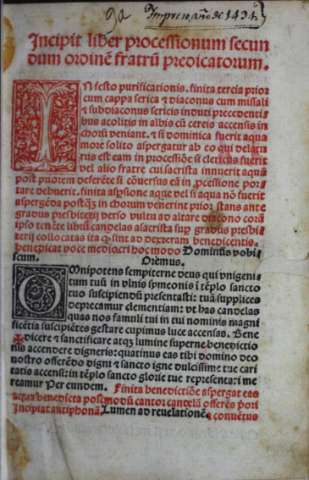 Impreso, año de 1494
Incipit liber processionum secun
dum ordinē fratrū predicatorum.
IN festo purificationis. finita tercia prior
cum cappa serica & diaconus cum missali
& subdiaconus sericio induti precedentibus
acolitis in albis cū cereis accensis in
chorū veniant. & si dominica fuerit aqua
more solito aspergatur ab eo qui delaturus
est eam in processiōe si clericus fuerit
vel alio fratre cui sacrista innuerit aquā
post priorem deferēte si cōuersus eā in processione por
tare debuerit. finita aspersione aque vel si aqua nō fuerit
aspergēda postquam in chorum venerint prior stans ante
gradus presbiterij verso vultu ad altare diacono coram
ipso tenēte librū candelas a sacrista super gradus presbi
terij collocatas ita quod sint ad dexteram benedicentis.
benedicat voce mediocri hoc modo Dominus vobis
cum. Oremus.
OMnipotens sempiterne deus qui vnigeni
tum tuū in vlnis symeonis ī tēplo sancto
tuo suscipiendū presentasti: tuā supplices
deprecamur clementiam: vt has candelas
quas nos famuli tui in tui nominis magni
ficētia suscipiētes gestare cupimus luce accensas. Bene
dicere & sanctificare atqз lumine superne benedictio
nis accendere digneris: quatinus eas tibi domino deo
nostro offerēdo digni & sancto igne dulcissime tue cari
tatis accensi: in tēplo sancto glorie tue representari me
reamur Per eundem. Finita benedictiōe aspergat eas
aqua benedicta postmodū cantor candelā offerēs priori
Incipiat antiphonā Lumen ad reuelationē & conuētus